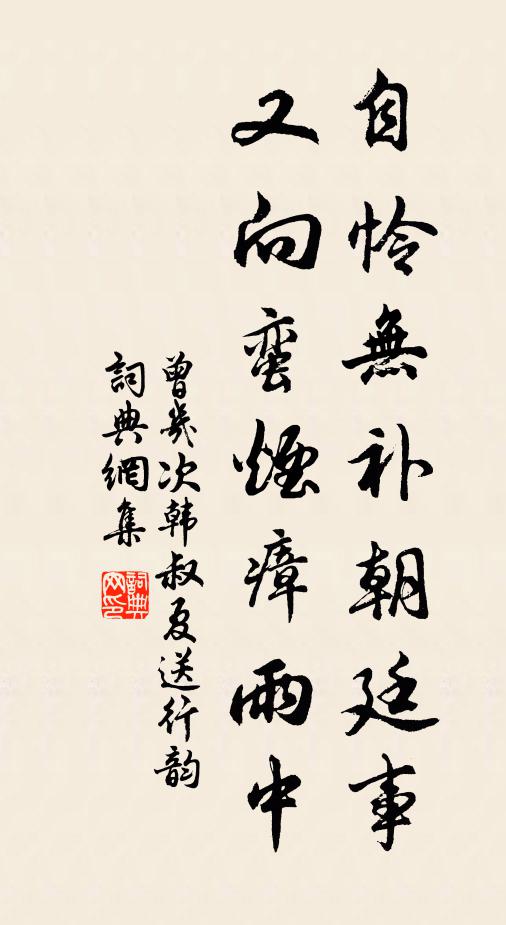 自怜無补朝廷事
又向蛮煙瘴雨中
曾幾次韩叔夏送行韵
詞典網集
詞典网印